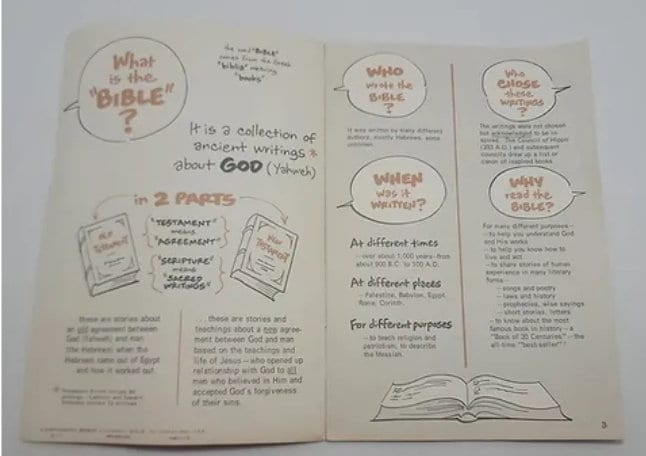 What
is the
"BIBLE"
?
the word "BIBLE"
comes from the Greek
"biblia" meaning
"books"
It is a collection of
ancient writings *
about GOD (Yahweh)
in 2 PARTS
"TESTAMENT"
means
"AGREEMENT"
"SCRIPTURE"
means
"SACRED
WRITINGS"
TESTAMENT
NEW
TESTAMENT
these are stories about
an old agreement between
God (Yahweh) and man
(the Hebrews) when the
Hebrews came out of Egypt
and how it worked out.
... these are stories and
teachings about a new agree-
ment between God and man
based on the teachings and
life of Jesus—who opened up
relationship with God to all
men who believed in Him and
accepted God's forgiveness
of their sins.
WHO
wrote the
BIBLE
?
It was written by many different
authors, mostly Hebrews, some
unknown.
WHEN
was it
WRITTEN?
At different times
—over about 1,000 years—from
about 900 B.C. to 100 A.D.
At different places
—Palestine, Babylon, Egypt,
Rome, Corinth.
For different purposes
—to teach religion and
patriotism, to describe
the Messiah.
Who
CHOSE
these
WRITINGS
?
The writings were not chosen
but acknowledged to be in-
spired. The Council of Hippo
(393 A.D.) and subsequent
councils drew up a list or
canon of inspired books.
WHY
read the
BIBLE?
For many different purposes—
—to help you understand God
and His works
—to help you know how to
live and act
—to share stories of human
experience in many literary
forms—
—songs and poetry
—laws and history
—prophecies, wise sayings
—short stories, letters
—to know about the most
famous book in history—a
"Book of 20 Centuries"—the
all-time "best-seller"!
3